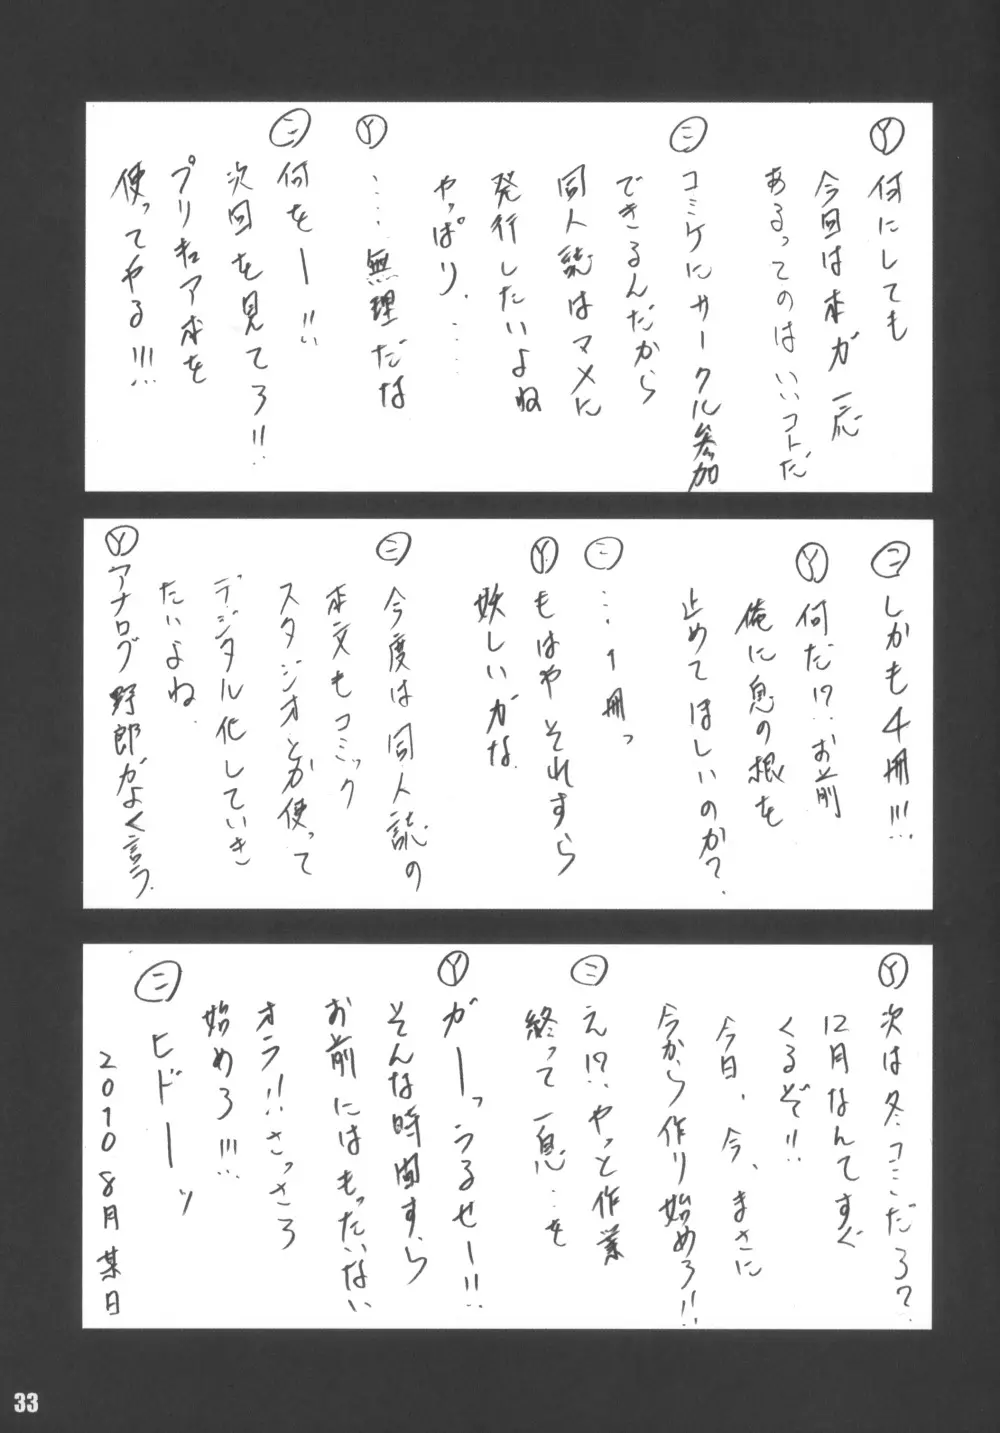 Ⓨ何にしても
今回は本が一応
あるってのはいいコトだ
㊁コミケにサークル参加
できるんだから
同人誌はマメに
発行したいよね
やっぱり……
Ⓨ……無理だな
㊁何をー!!
次回を見てろ!!
プリキュア本を
使ってやる!!!
㊁しかも4冊!!!
Ⓨ何だ!?お前
俺に息の根を
止めてほしいのか?
㊁…1冊っ
Ⓨもはやそれすら
妖しいがな
㊁今度は同人誌の
本文もコミック
スタジオとか使って
デジタル化していき
たいよね、
Ⓨアナログ野郎がよく言う
Ⓨ次は冬コミだろ?
12月なんてすぐ
くるぞ!!
今日、今、まさに
今から作り始めろ!!
㊁え!?やっと作業
終って一息…を
Ⓨがーっうるせー!!
そんな時間すら
お前にはもったいない
オラ!!さっさろ
始めろ!!!
㊁ヒドーッ
2010 8月某日
33